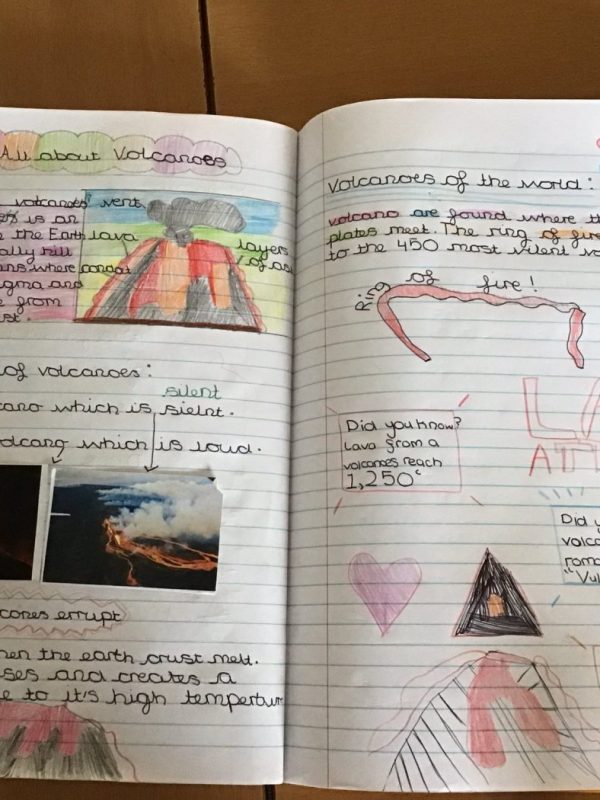 All about Volcanoes
volcanoes' vent
is an
the Earth lava
layers
ally kill
of as
ans where conoat
gma and
from
st.
of volcanoes:
silent
cano which is sielnt.
olcano which is loud.
canoes errupt
hen the earth crust melt.
ses and creates a
e to it's high tempertur
Volcanoes of the world:
volcano are found where th
plates meet. The ring of fire
to the 450 most vilent vo
Ring of fire!
LA
AT
Did you know?
Lava from a
volcanoes reach
1,250°c
Did y
volca
roma
"Vul